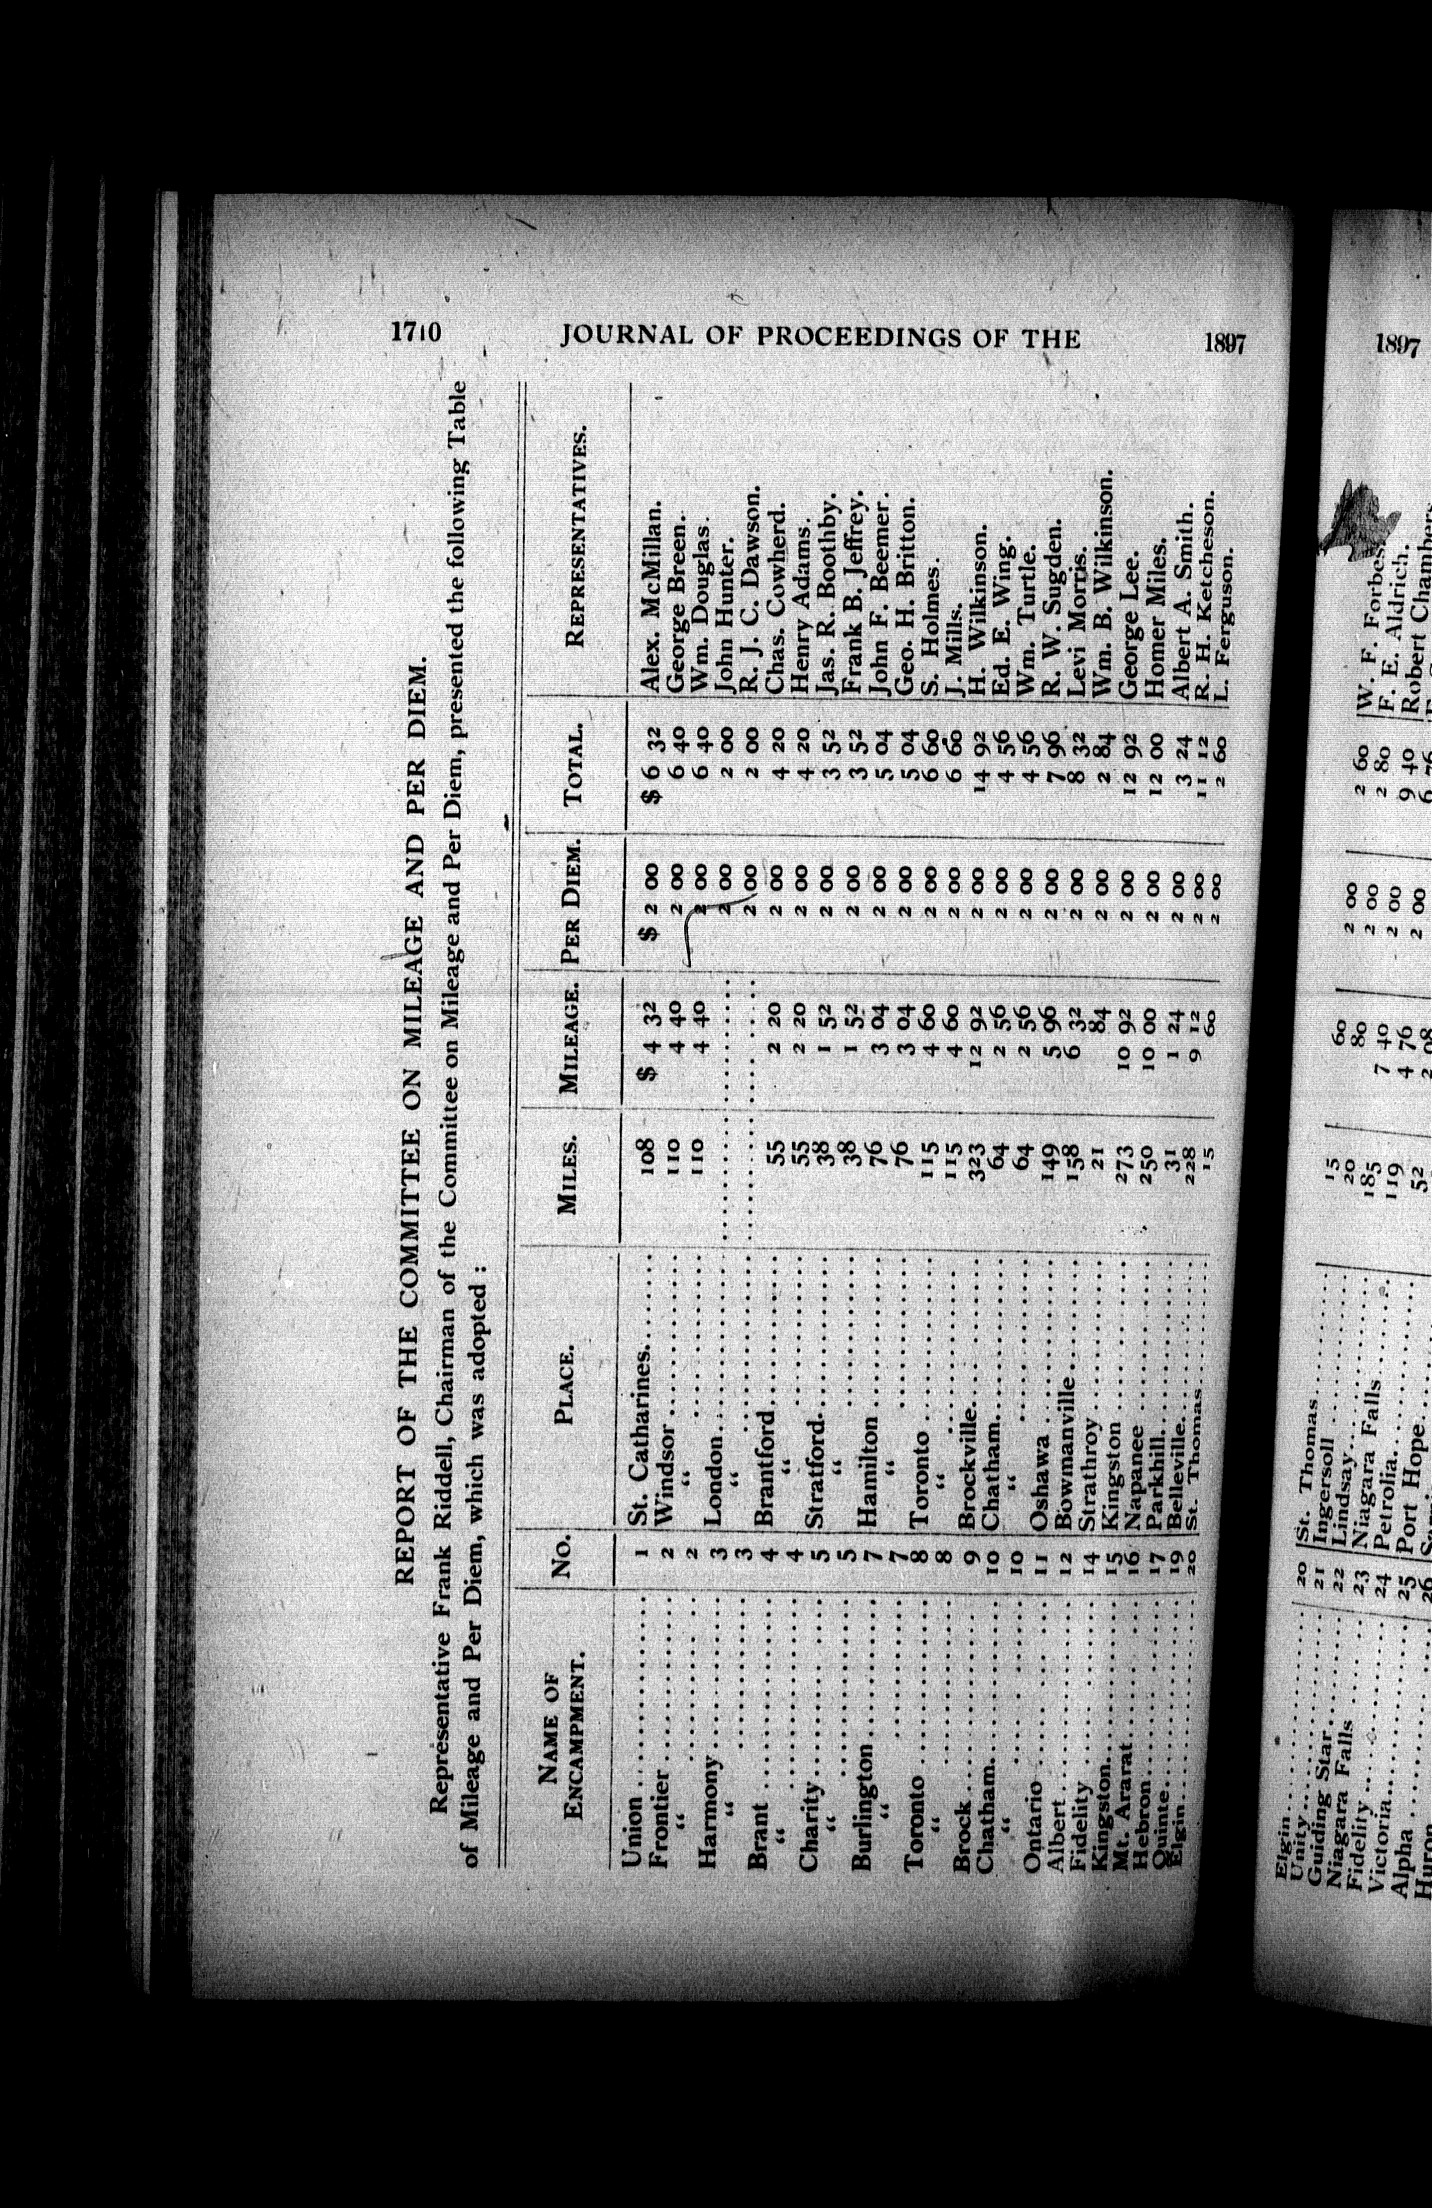 1710 JOURNAL OF PROCEEDINGS OF THE 1897
REPORT OF THE COMMITTEE ON MILEAGE AND PER DIEM.
Representative Frank Riddell, Chairman of the Committee on Mileage and Per Diem, presented the following Table
of Mileage and Per Diem, which was adopted :
NAME OF ENCAMPMENT. No. PLACE. MILES. MILEAGE. PER DIEM. TOTAL. REPRESENTATIVES.
Union 1 St. Catharines 108 $ 4 32 $ 2 00 $ 6 32 Alex. McMillan.
Frontier 2 Windsor 110 4 40 2 00 6 40 George Breen.
“ 2 “ 110 4 40 2 00 6 40 Wm. Douglas.
Harmony 3 London 2 00 2 00 John Hunter.
“ 3 “ 2 00 2 00 R. J. C. Dawson.
Brant 4 Brantford 55 2 20 2 00 4 20 Chas. Cowherd.
“ 4 “ 55 2 20 2 00 4 20 Henry Adams.
Charity 5 Stratford 38 1 52 2 00 3 52 Jas. R. Boothby.
“ 5 “ 38 1 52 2 00 3 52 Frank B. Jeffrey.
Burlington 7 Hamilton 76 3 04 2 00 5 04 John F. Beemer.
“ 7 “ 76 3 04 2 00 5 04 Geo. H. Britton.
Toronto 8 Toronto 115 4 60 2 00 6 60 S. Holmes.
“ 8 “ 115 4 60 2 00 6 60 J. Mills.
Brock 9 Brockville 323 12 92 2 00 14 92 H. Wilkinson.
Chatham 10 Chatham 64 2 56 2 00 4 56 Ed. E. Wing.
“ 10 “ 64 2 56 2 00 4 56 Wm. Turtle.
Ontario 11 Oshawa 149 5 96 2 00 7 96 R. W. Sugden.
Albert 12 Bowmanville 158 6 32 2 00 8 32 Levi Morris.
Fidelity 14 Strathroy 21 84 2 00 2 84 Wm. B. Wilkinson.
Kingston 15 Kingston 273 10 92 2 00 12 92 George Lee.
Mt. Ararat 16 Napanee 250 10 00 2 00 12 00 Homer Miles.
Hebron 17 Parkhill 31 1 24 2 00 3 24 Albert A. Smith.
Quinte 19 Belleville 228 9 12 2 00 11 12 R. H. Ketcheson.
Elgin 20 St. Thomas 15 60 2 00 2 60 L. Ferguson.
1897
Elgin 20 St. Thomas 15 60 2 00 2 60 W. F. Forbes
Unity 21 Ingersoll 20 80 2 00 2 80 F. E. Aldrich.
Guiding Star 22 Lindsay 185 7 40 2 00 9 40 Robert Chambers
Niagara Falls 23 Niagara Falls 119 4 76 2 00
Fidelity 24 Petrolia 52
Victoria 25 Port Hope
Alpha 26
Huron